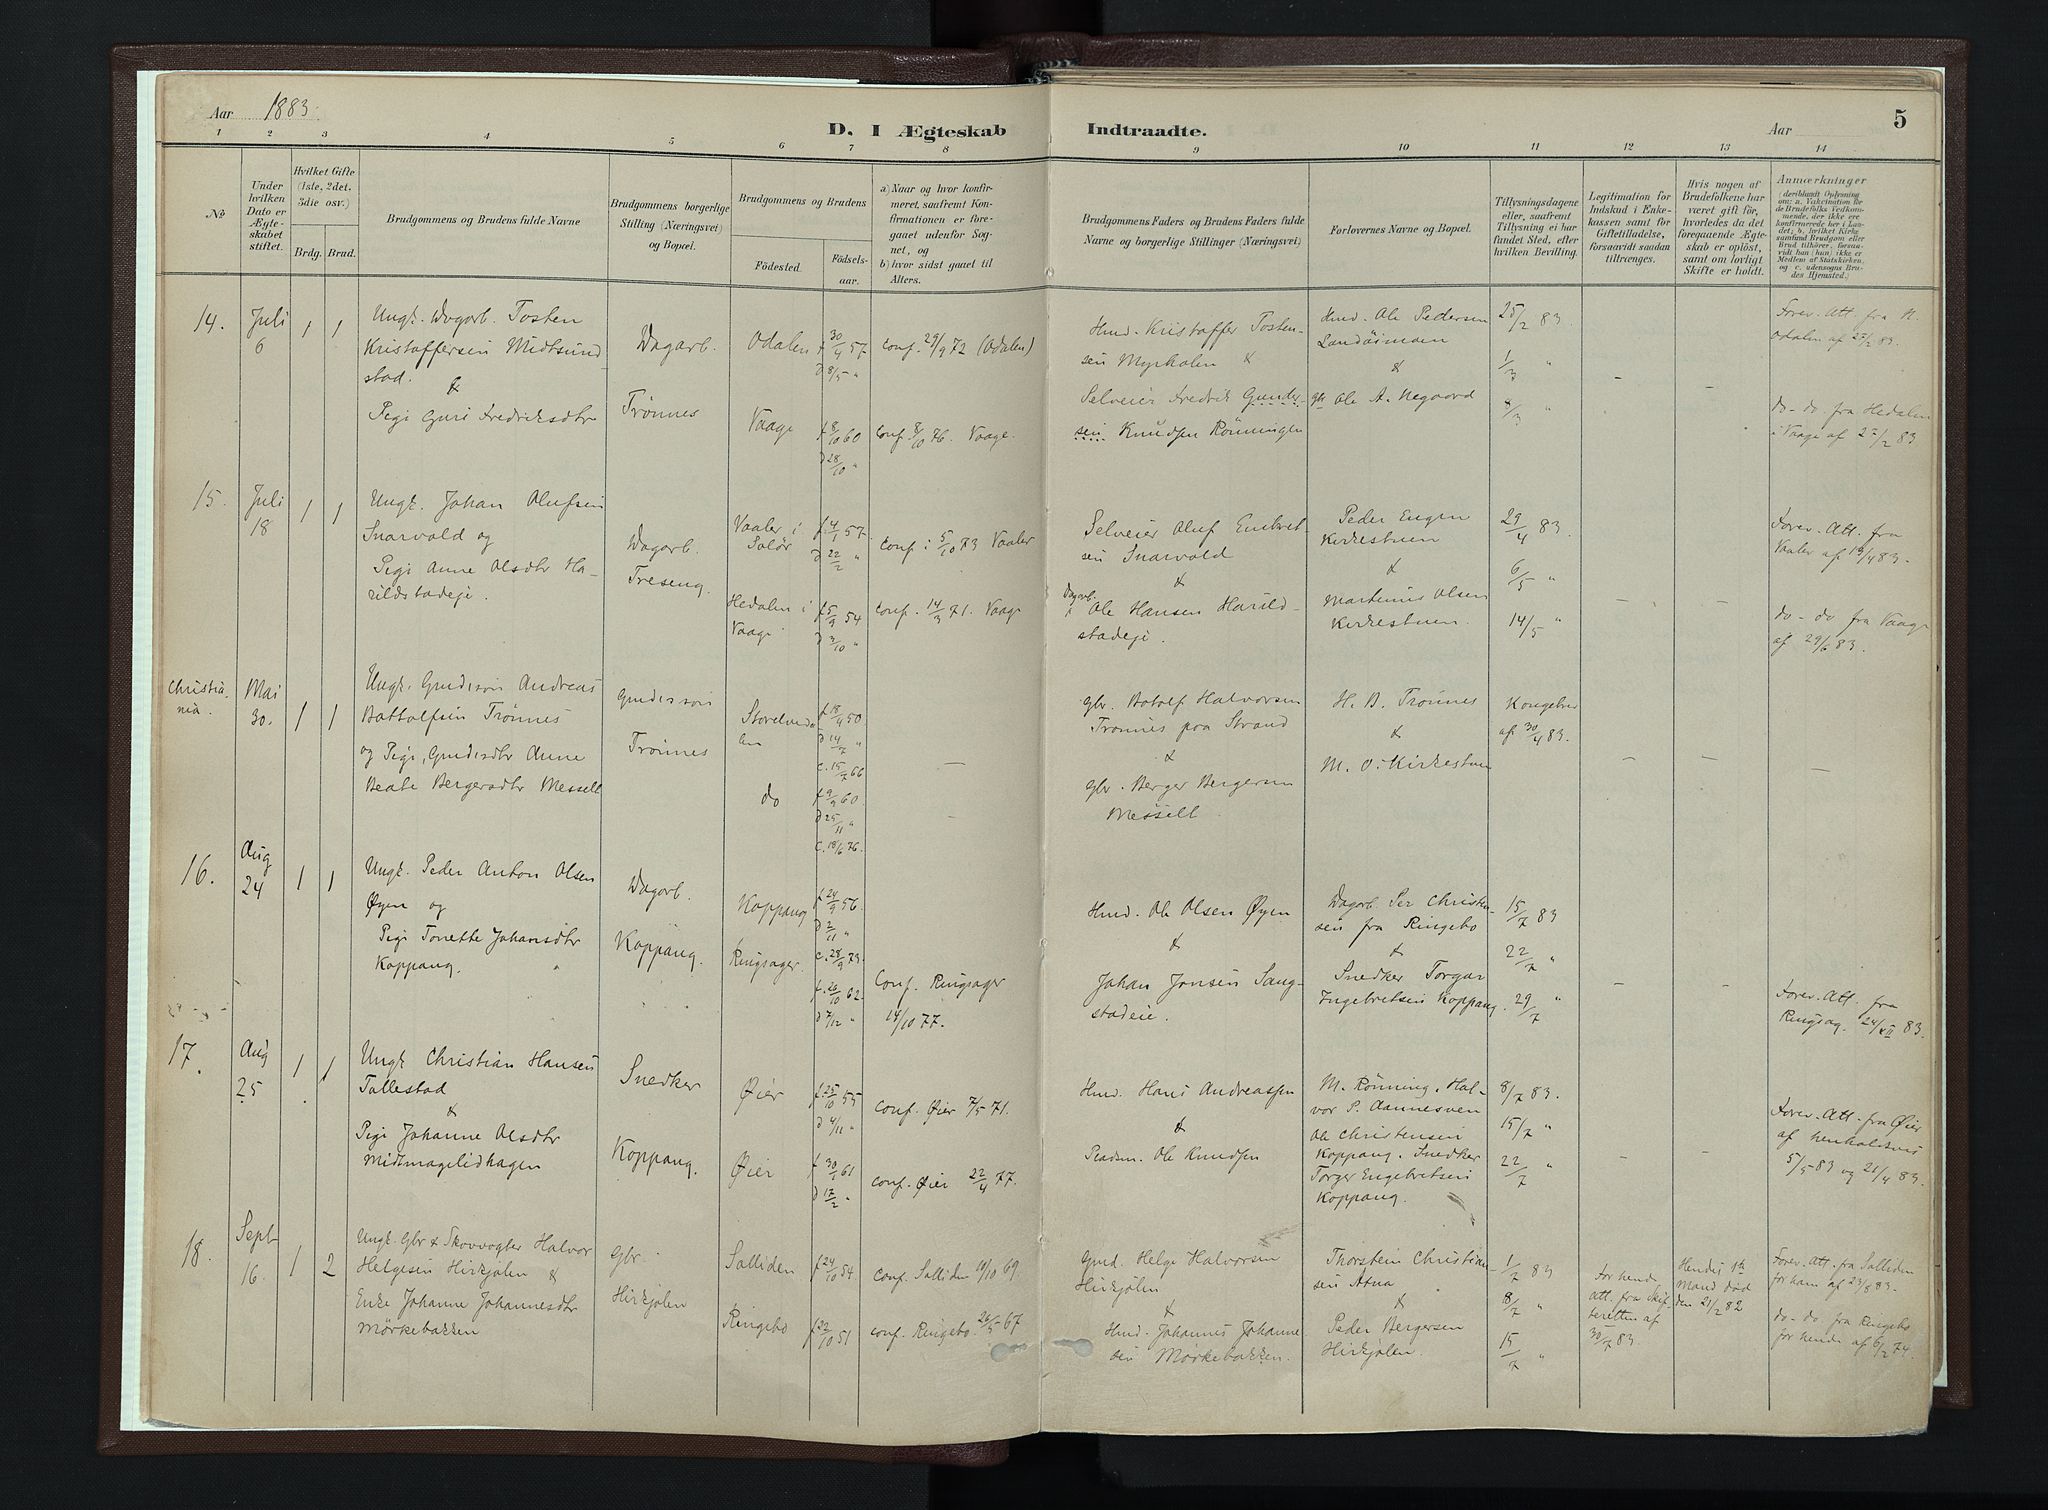 Aar 1883.
D. I Ægteskab
Indtraadte.
Aar
5
1 2 3 4 5 6 7 8 9 10 11 12 13 14
No
Under hvilken Dato er Ægteskabet stiftet.
Hvilket Gifte (1ste, 2det, 3die osv.)
Brdg. Brud.
Brudgommens og Brudens fulde Navne
Brudgommens borgerlige Stilling (Næringsvei) og Bopæl.
Brudgommens og Brudens
Födested.
Födselsaar.
a) Naar og hvor konfirmeret, saafremt Konfirmationen er foregaaet udenfor Sognet, og
b) hvor sidst gaaet til Alters.
Brudgommens Faders og Brudens Faders fulde Navne og borgerlige Stillinger (Næringsvei)
Forlovernes Navne og Bopæl.
Tillysningsdagene eller, saafremt Tillysning ei har fundet Sted, efter hvilken Bevilling.
Legitimation for Indskud i Enkekassen samt for Giftetilladelse, forsaavidt saadan tiltrænges.
Hvis nogen af Brudefolkene har været gift för, hvorledes da det foregaaende Ægteskab er oplöst, samt om lovligt Skifte er holdt.
Anmærkninger
(deriblandt Oplysning om: a. Vakcination for de Brudefolks Vedkommende, der ikke ere konfirmerede her i landet; b. hvilket Kirkesamfund Brudgom eller Brud tilhörer, forsaavidt han (hun) ikke er Medlem af Statskirken, og c. udensogns Brudes Hjemsted.)
14.
Juli
6
1 1
Ungk. Dagarb. Tosten
Kristoffersen Midtsund
stad.
&
Pigi Guri Fredriksdtr
Dagarb.
Trönnes
Odalen
f 30/4 57
d 8/5 "
conf. 29/9 72 (Odalen)
Vaage
f 8/10 60
d 28/10 "
conf. 8/10 76. Vaage.
Hmd. Kristoffer Tosten-
sen Myrholen &
Selveier Fredrik Gunder-
sen Knudsen Rönningen
Hmd. Ole Pedersen
Landöimoen
&
gbr Ole A. Negaard
25/2 83.
1/3 "
8/3 "
-
-
Forev. Att. fra N.
Odalen af 22/2 83.
do - do fra Hedalen
i Vaage af 27/2 83
15.
Juli
18
1 1
Ungk. Johan Olufsen
Snarvold og
Pigi Anne Olsdtr Ha-
rildstadeje.
Dagarb.
Treseng.
Vaaler i
Solör
f 4/1 57.
d 22/2 "
conf. i 5/10 73 Vaaler
Hedalen i
Vaage
f 5/9 54
d 3/10 "
conf. 14/3 71. Vaage
Selveier Oluf Embret-
sen Snarvold
&
Dagarb.
Ole Hansen Harild-
stadeje.
Peder Engen
Kirkestuen
&
Martinus Olsen
Kirkestuen.
29/4 83.
6/5 "
14/5 "
-
-
Forev. Att. fra
Vaaler af 19/4 83.
do - do fra Vaage
af 29/6 83.
Christia-
nia.
Mai
30.
1 1
Ungk. Gmdssön Andreas
Bottolfsen Trönnes
og Pigi, Gmdsdtr Anne
Beate Bergersdtr Messelt
Gmdssön
Trönnes
Storelvda-
len
f 18/4 50
d 14/7 "
c. 15/7 66
-
do
f 9/9 60
d 25/11 "
c. 18/6 76.
-
gbr. Botolf Halvorsen
Trönnes paa Strand
&
gbr. Berger Bergersen
Messelt.
H. B. Trönnes
&
M. O. Kirkestuen
Kongebrev
af 30/4 83.
-
-
-
16.
Aug
24
1 1
Ungk. Peder Anton Olsen
Öyen og
Pigi Tonette Johansdtr
Koppang.
Dagarb.
Koppang.
Koppang
f 24/9 56.
d 2/11 "
c. 28/9 73.
Ringsager.
f. 26/10 62.
d 7/12 "
conf. Ringsager
14/10 77.
Hmd. Ole Olsen Öyen
&
Johan Jonsen Sang-
stadeie.
Dagarb. Per Christen-
sen fra Ringebo
&
Snedker Torger
Ingebretsen Koppang.
15/7 83
22/7 "
29/7 "
-
-
Forev. Att. fra
Ringsag. 24/VII 83.
17.
Aug
25
1 1
Ungk Christian Hansen
Tollestad
&
Pigi Johanne Olsdtr
Midtmagelidhagen
Snedker
Koppang.
Öier
f. 25/10 55
d 4/11 "
conf. Öier 7/5 71.
Öier
f 30/1 61
d 17/2 "
conf. Öier 22/4 77.
Hmd. Hans Andreassen
&
Pladsm. Ole Knudsen
M. Rönning, Hal-
vor P. Aannesven
Ole Christensen
Koppang. Snedker
Torger Engebretsen
Koppang.
8/7 83.
15/7 "
22/7 "
-
-
Forev. Att. fra Öier
af henholdsvis
5/5 83 og 21/4 83.
18.
Sept
16.
1 2
Ungk. Gbr & Skovvogter Halvor
Helgesen Hirkjölen &
Enke Johanne Johannesdtr
Mörkebakken
Gbr.
Hirkjölen
Solliden
f 24/10 54
conf. Solliden 10/10 69
Ringebo
f 22/10 51
conf. Ringebo. 26/5 67
Gmd. Helge Halvorsen
Hirkjölen
&
Hmd. Johannes Johanne
sen Mörkebakken.
Thorstein Christian-
sen Atna
&
Peder Bergersen
Hirkjölen.
1/7 83
8/7 "
15/7 "
For hende
att. fra Skif-
teretten af
30/7 83
Hendes 1ste
Mand död
den 21/2 82
Forev. Att. fra Solliden
for ham af 23/8 83.
do - do fra Ringebo
for hende af 6/2 74.